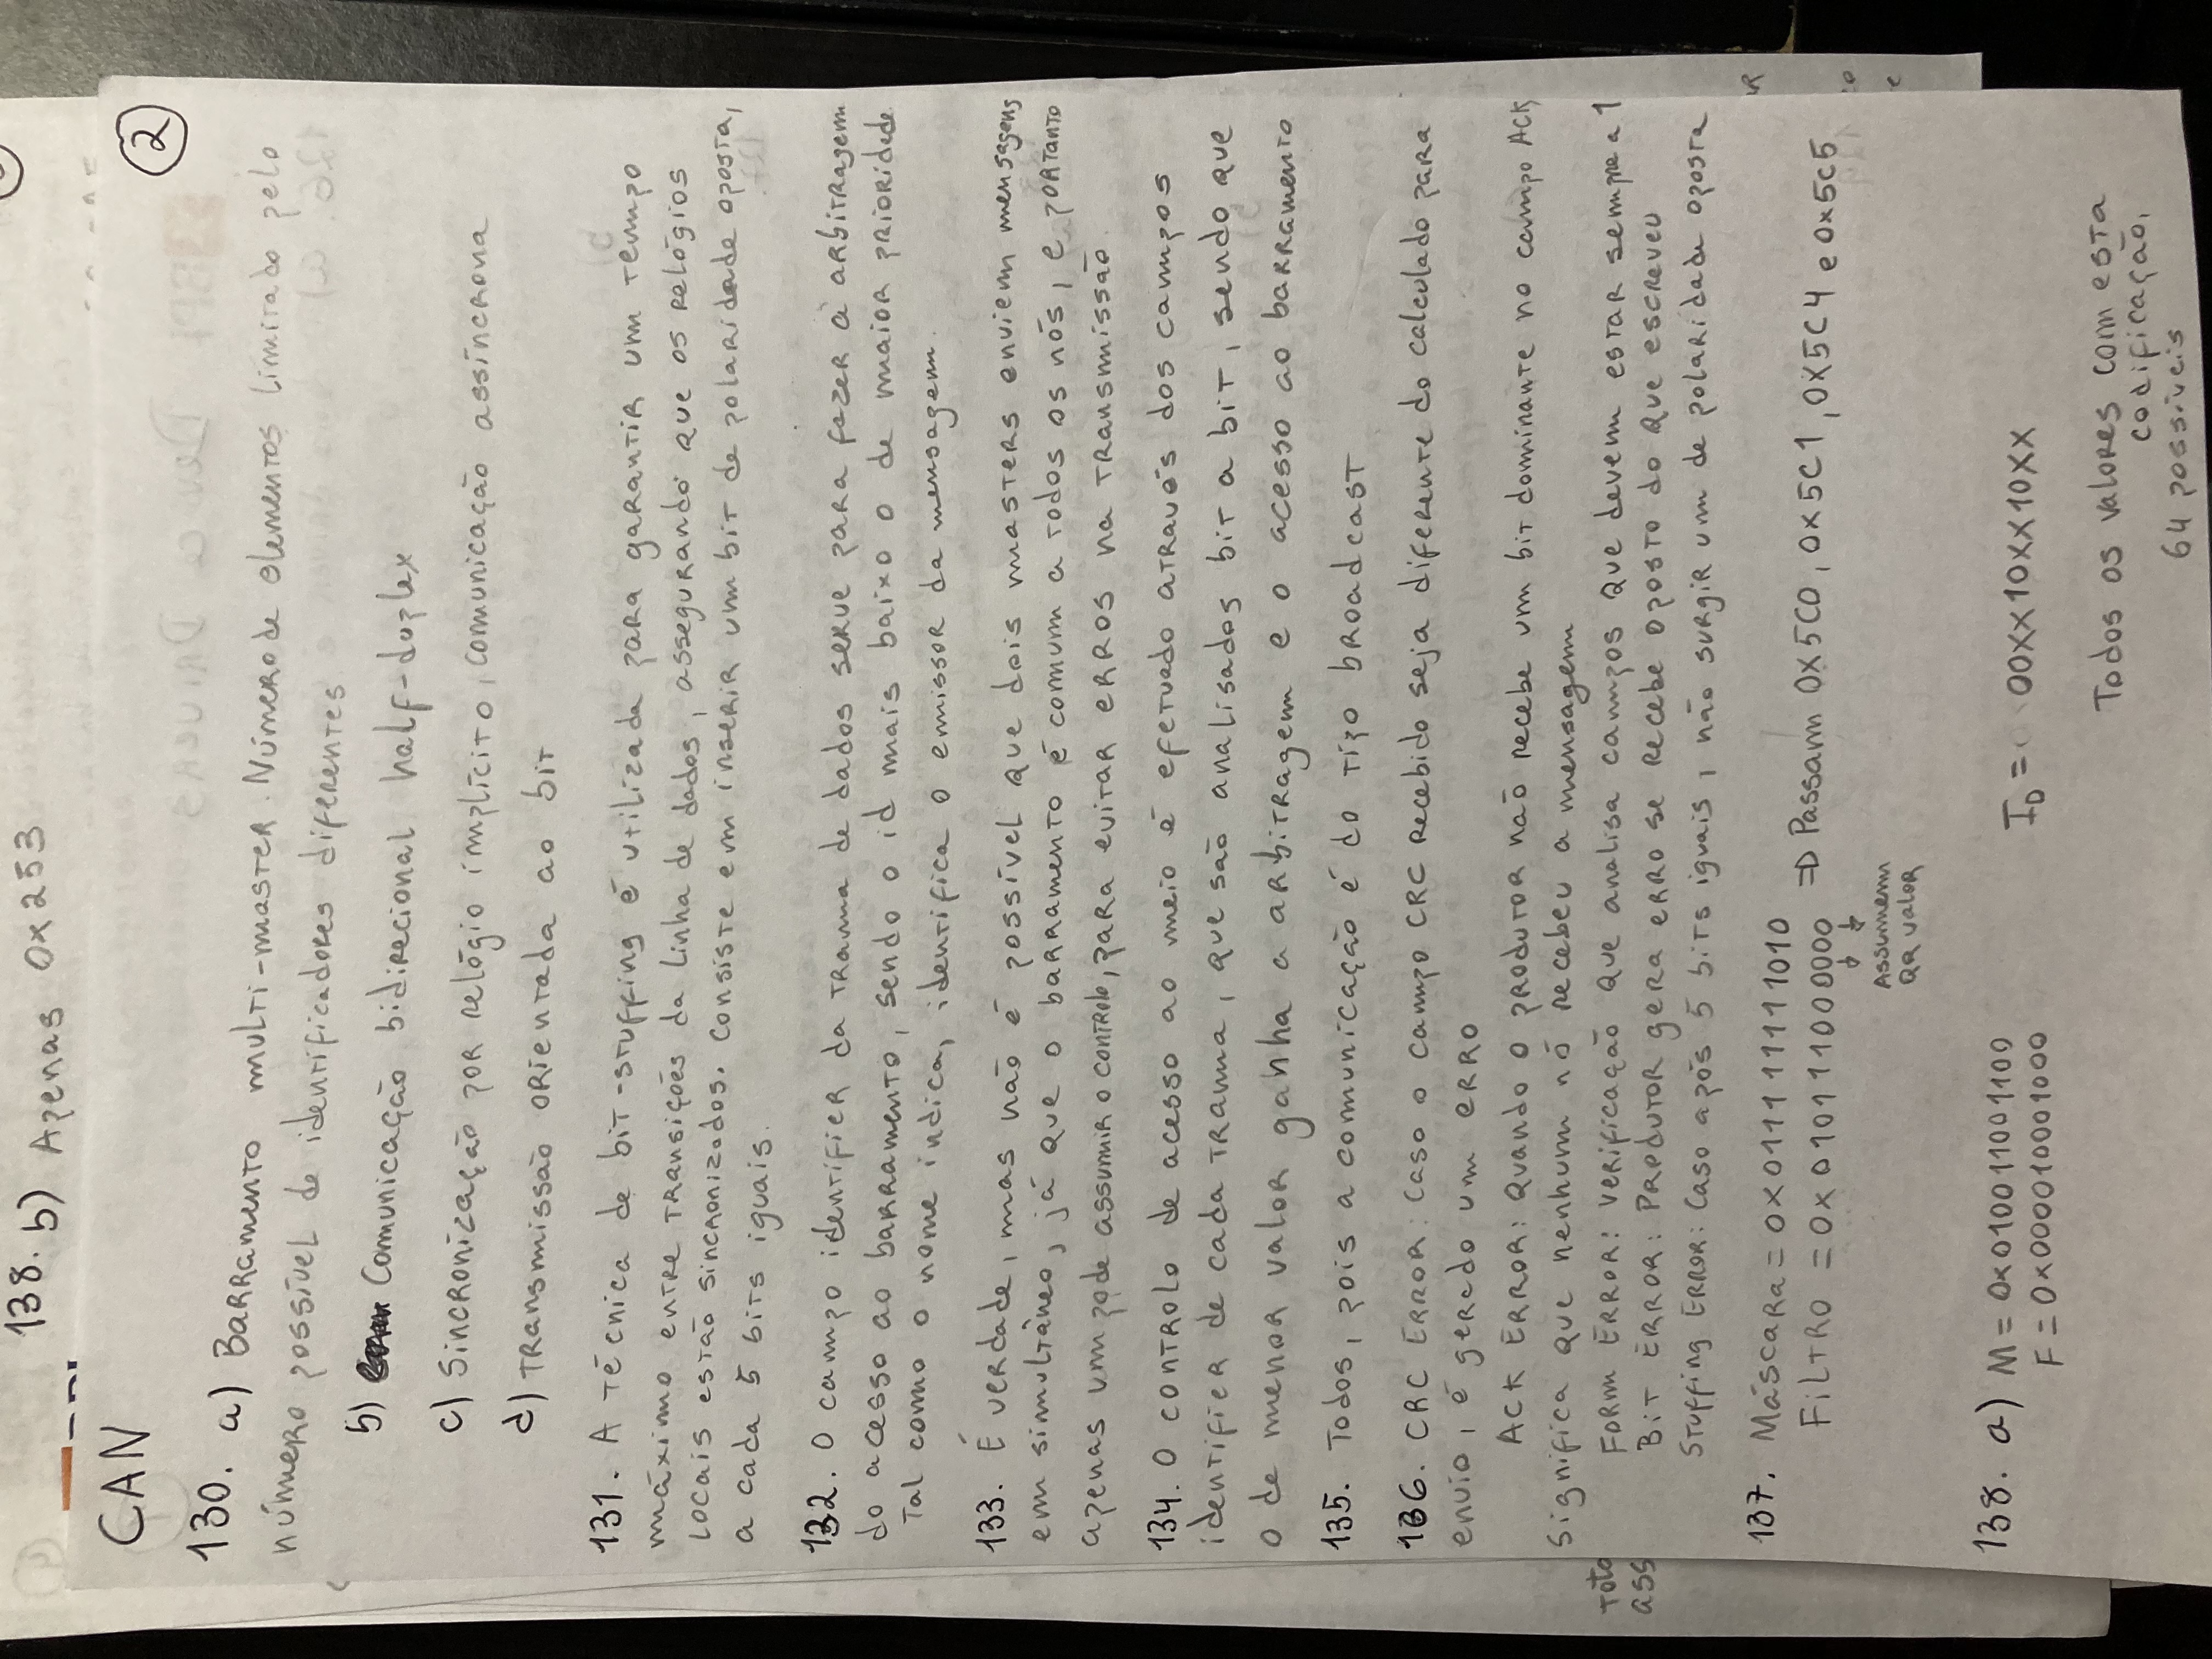 138. b) Apenas 0x253
CAN
2
130. a) Barramento multi-master. Número de elementos limitado pelo
número possível de identificadores diferentes
b) Comunicação bidirecional half-duplex
c) Sincronização por relógio implícito, comunicação assíncrona
d) Transmissão orientada ao bit
131. A técnica de bit-stuffing é utilizada para garantir um tempo
máximo entre transições da linha de dados, assegurando que os relógios
locais estão sincronizados. Consiste em inserir um bit de polaridade oposta,
a cada 5 bits iguais.
132. O campo identifier da trama de dados serve para fazer a arbitragem
do acesso ao barramento, sendo o id mais baixo o de maior prioridade.
Tal como o nome indica, identifica o emissor da mensagem.
133. É verdade, mas não é possível que dois masters enviem mensagens
em simultâneo, já que o barramento é comum a todos os nós, e portanto
apenas um pode assumir o controlo, para evitar erros na transmissão.
134. O controlo de acesso ao meio é efetuado através dos campos
identifier de cada trama, que são analisados bit a bit, sendo que
o de menor valor ganha a arbitragem e o acesso ao barramento
135. Todos, pois a comunicação é do tipo broadcast
136. CRC Error: Caso o campo CRC recebido seja diferente do calculado para
envio, é gerado um erro
ACK Error: Quando o produtor não recebe um bit dominante no campo ACK,
significa que nenhum nó recebeu a mensagem
Form Error: Verificação que analisa campos que devem estar sempre a 1
Bit Error: Produtor gera erro se recebe oposto do que escreveu
Stuffing Error: Caso após 5 bits iguais, não surgir um de polaridade oposta
137. Máscara = 0x011111111010
Filtro = 0x010111000000 => Passam 0x5C0, 0x5C1, 0x5C4 e 0x5C5
Assumem
QQ valor
138. a) M = 0x010011001100
F = 0x000010001000
ID = 00XX10XX10XX
Todos os valores com esta
codificação,
64 possíveis